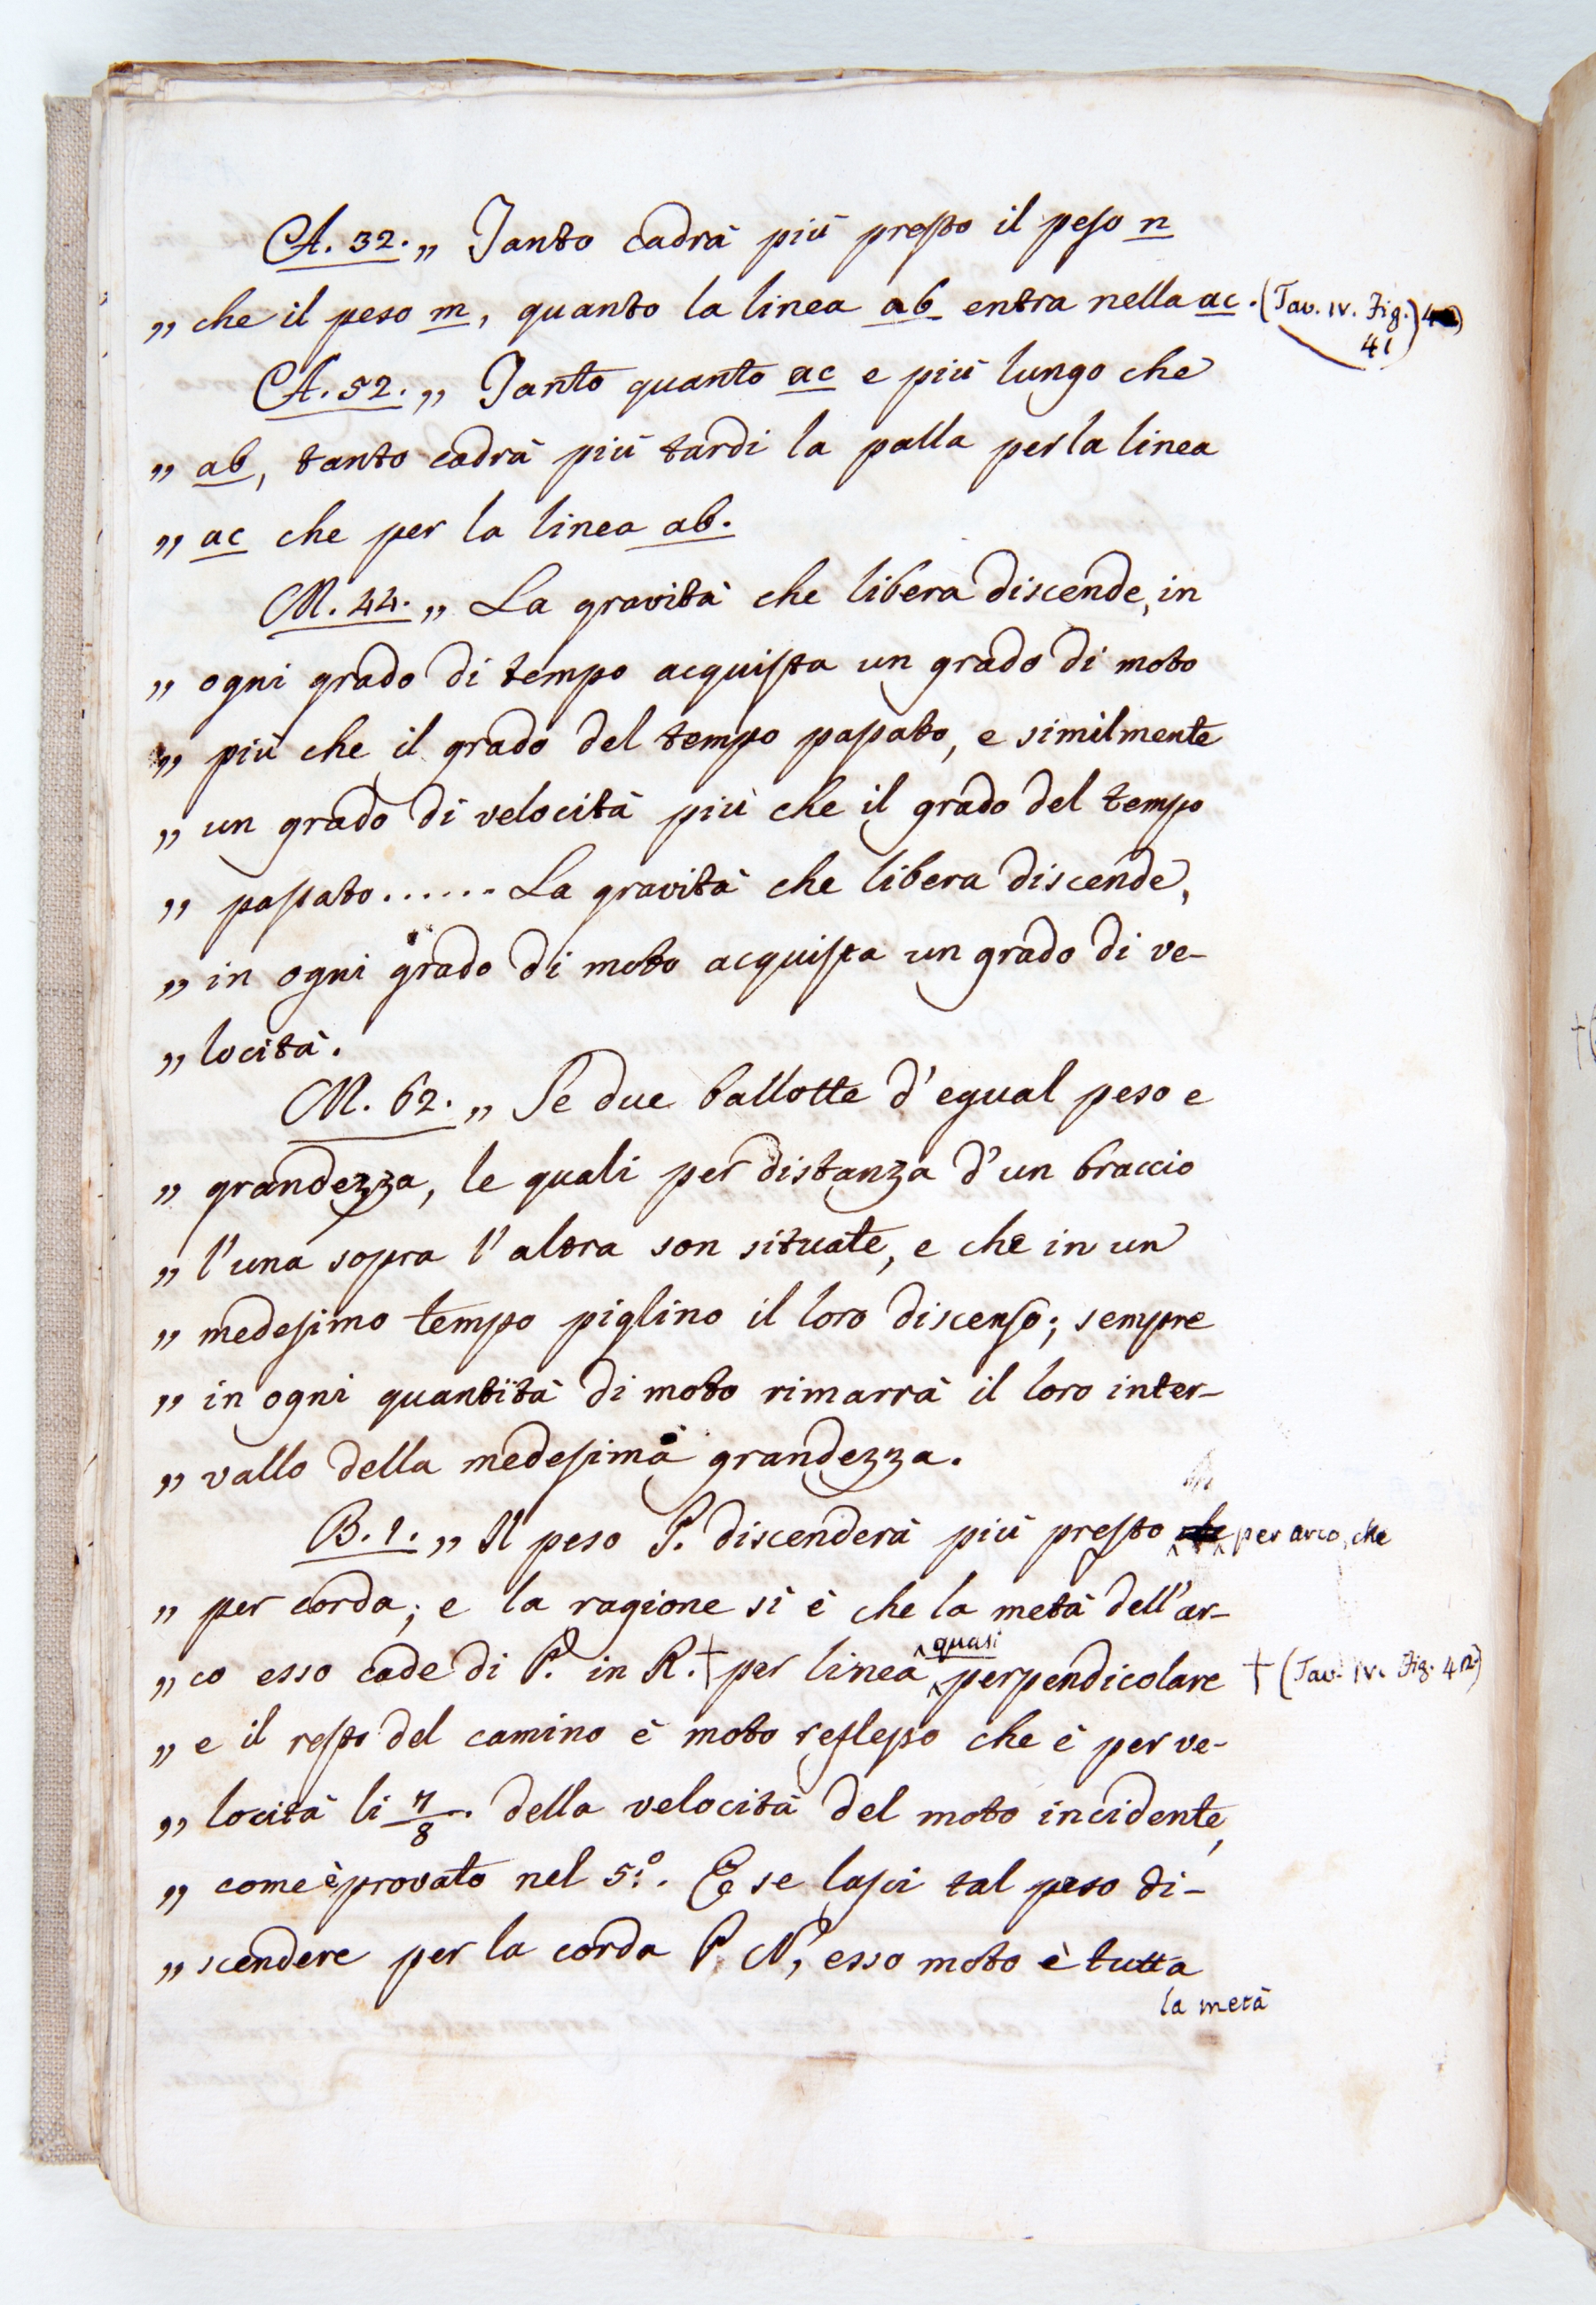 A. 32. „ Tanto cadrà più presto il peso n
„ che il peso m, quanto la linea ab entra nella ac. (Tav. IV. Fig.)
41
A. 52. „ Tanto quanto ac e più lungo che
„ ab, tanto cadrà più tardi la palla per la linea
„ ac che per la linea ab.
M. 44. „ La gravità che libera discende, in
„ ogni grado di tempo acquista un grado di moto
„ più che il grado del tempo passato, e similmente
„ un grado di velocità più che il grado del tempo
„ passato...... La gravità che libera discende,
„ in ogni grado di moto acquista un grado di ve-
„ locità.
M. 62. „ Se due ballotte d'egual peso e
„ grandezza, le quali per distanza d'un braccio
„ l'una sopra l'altra son situate, e che in un
„ medesimo tempo piglino il loro discenso; sempre
„ in ogni quantità di moto rimarrà il loro inter-
„ vallo della medesima grandezza.
B. 1. „ Il peso P. discenderà più presto per arco, che
„ per corda; e la ragione si è che la metà dell'ar-
quasi
„ co esso cade di P. in R. † per linea perpendicolare † (Tav. IV. Fig. 42)
„ e il resto del camino è moto reflesso che è per ve-
„ locità li 7/8. della velocità del moto incidente,
„ come è provato nel 5.º. E se lasci tal peso di-
„ scendere per la corda P. N, esso moto è tutta
la metà